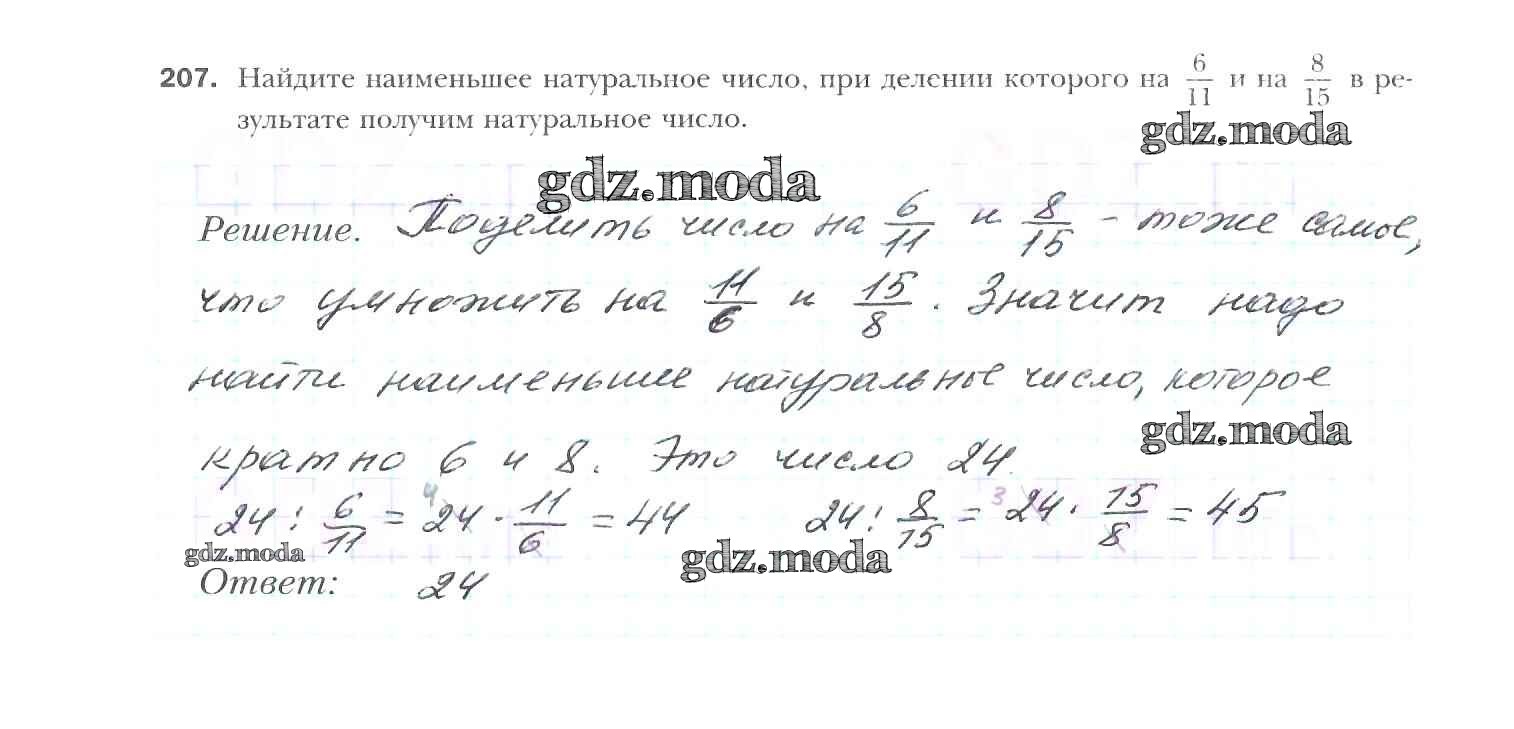 207. Найдите наименьшее натуральное число, при делении которого на 6/11 и на 8/15 в ре-
зультате получим натуральное число.
gdz.moda
gdz.moda
Решение. Поделить число на 6/11 и 8/15 - тоже самое,
что умножить на 11/6 и 15/8. Значит надо
найти наименьшее натуральное число, которое
gdz.moda
кратно 6 и 8. Это число 24.
24 : 6/11 = 24 4 · 11/6 = 44 24 : 8/15 = 3 24 · 15/8 = 45
gdz.moda
gdz.moda
Ответ: 24